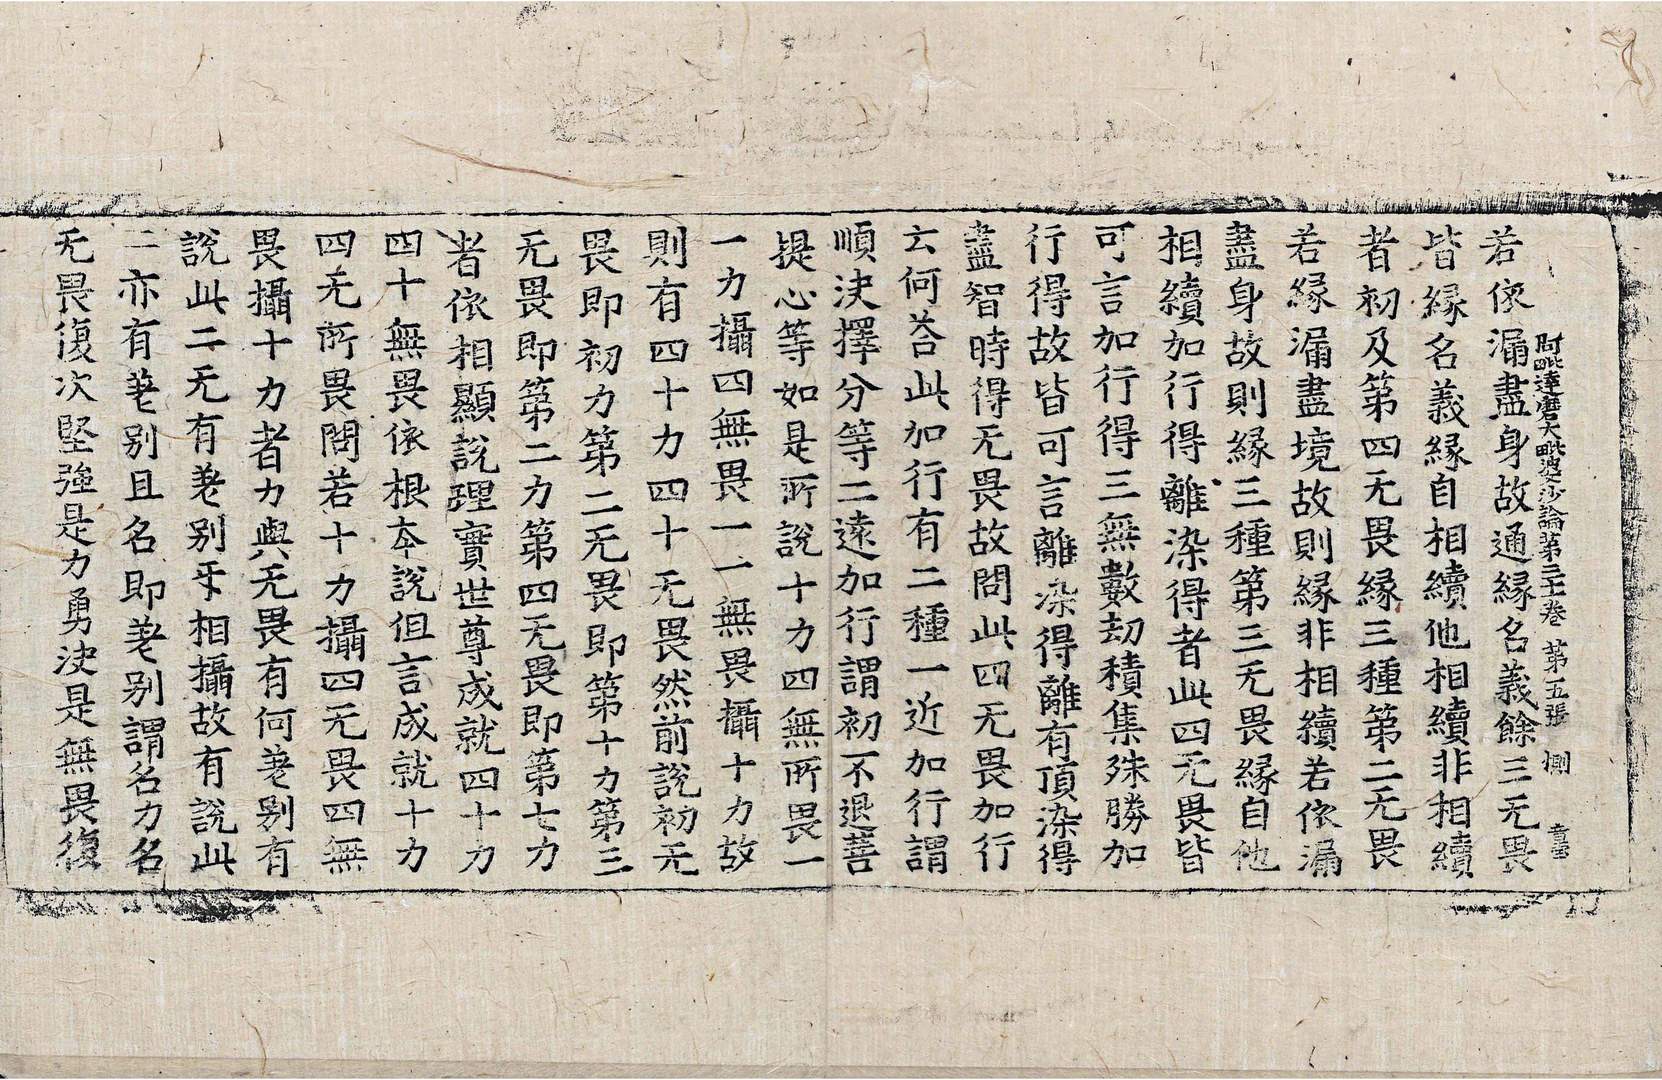 阿毗達磨大毗婆沙論第三十一卷 第五張 惻
若依漏盡身故通緣名義餘三无畏
皆緣名義緣自相續他相續非相續
者初及第四无畏緣三種第二无畏
若緣漏盡境故則緣非相續若依漏
盡身故則緣三種第三无畏緣自他
相續加行得離染得者此四无畏皆
可言加行得三無數劫積集殊勝加
行得故皆可言離染得離有頂染得
盡智時得无畏故問此四无畏加行
云何荅此加行有二種一近加行謂
順決擇分等二遠加行謂初不退菩
提心等如是所說十力四無所畏一
一力攝四無畏一一無畏攝十力故
則有四十力四十无畏然前說初无
畏即初力第二无畏即第十力第三
无畏即第二力第四无畏即第七力
者依相顯說理實世尊成就四十力
四十無畏依根本說但言成就十力
四无所畏問若十力攝四无畏四無
畏攝十力者力與无畏有何差別有
說此二无有差別互相攝故有說此
二亦有差別且名即差別謂名力名
无畏復次堅強是力勇決是無畏復